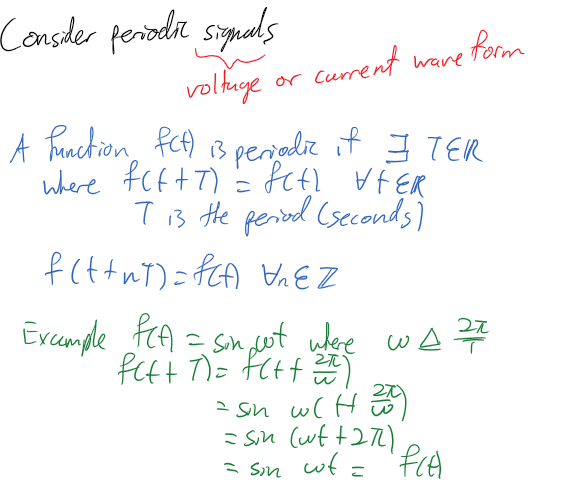 Consider periodic signals
voltage or current wave form
A function f(t) is periodic if ∃ T∈ℝ
where f(t+T) = f(t) ∀t∈ℝ
T is the period (seconds)
f(t+nT)=f(t) ∀n∈ℤ
Example f(t) = sin ωt where ω ≜ 2π/T
f(t+T) = f(t+2π/ω)
= sin ω(t+2π/ω)
= sin (ωt+2π)
= sin ωt = f(t)